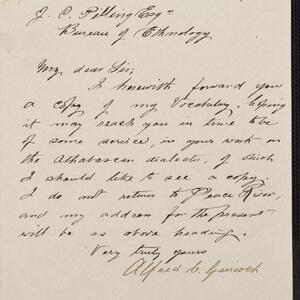 J. C. Pilling Esqre
Bureau of Ethnology
My dear Sir;
I herewith forward you
a copy of my Vocabulary, hoping
it may reach you in time to be
of some service, in your work on
the Athabascan dialects, of which
I should like to see a copy.
I do not return to Peace River,
and my address for the present
will be as above heading.
Very truly yours
Alfred C. Garrioch